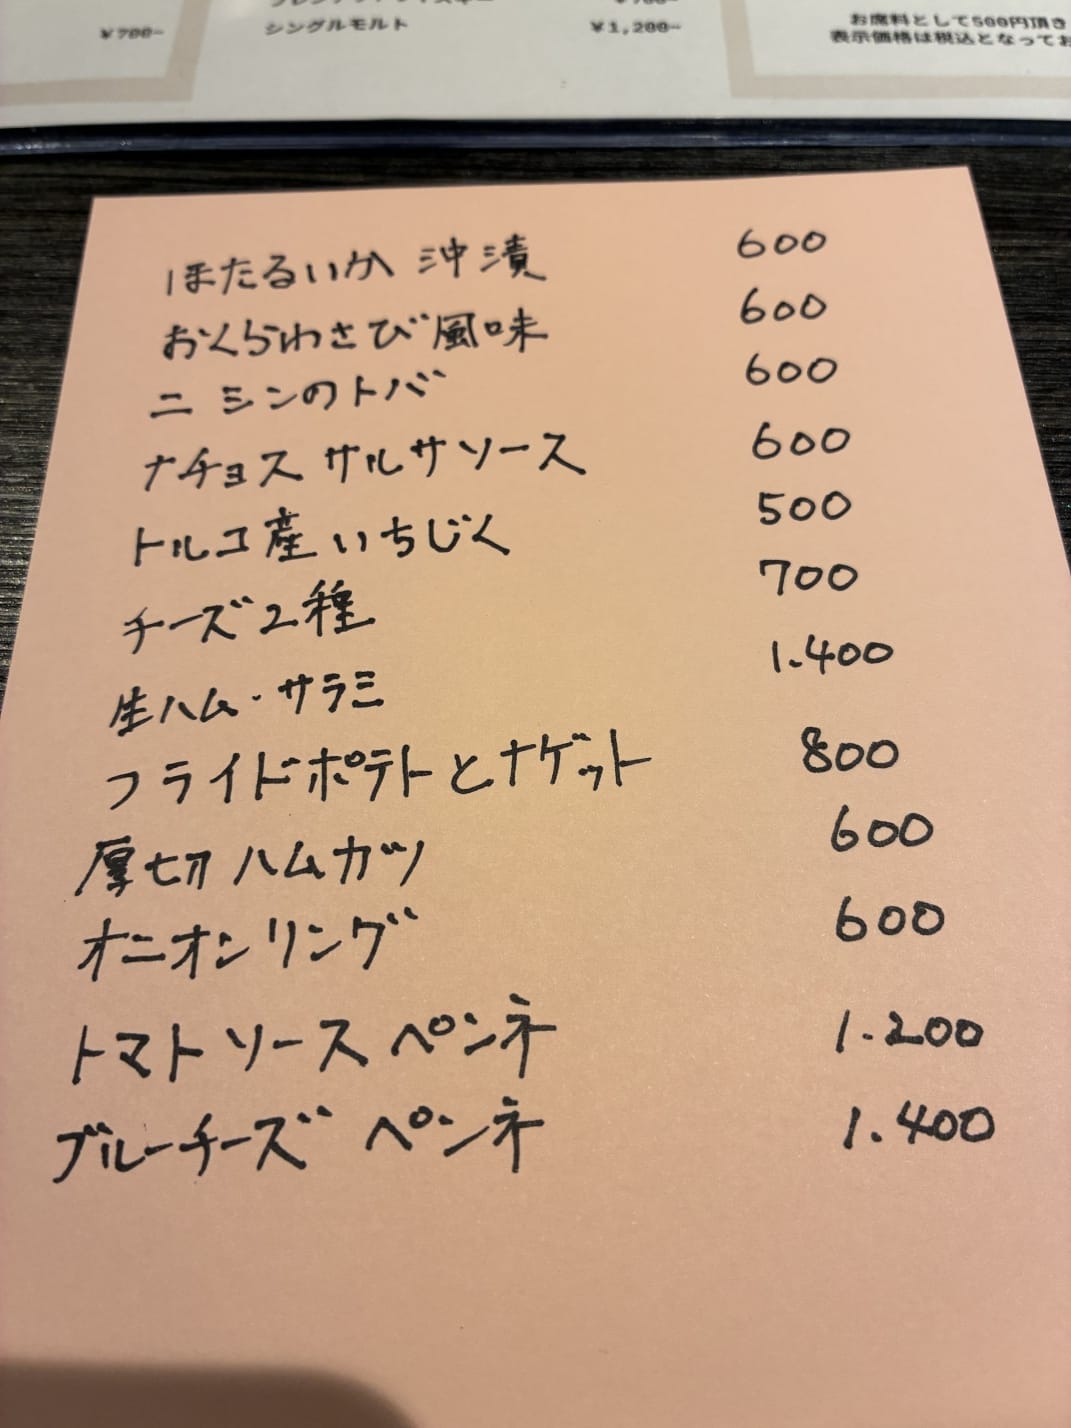 ¥700-
シングルモルト ¥1,200-
お席料として500円頂き
表示価格は税込となってお
ほたるいか 沖漬 600
おくらわさび風味 600
ニシンのトバ 600
ナチョス サルサソース 600
トルコ産いちじく 500
チーズ2種 700
生ハム・サラミ 1.400
フライドポテトとナゲット 800
厚切ハムカツ 600
オニオンリング 600
トマトソース ペンネ 1.200
ブルーチーズ ペンネ 1.400